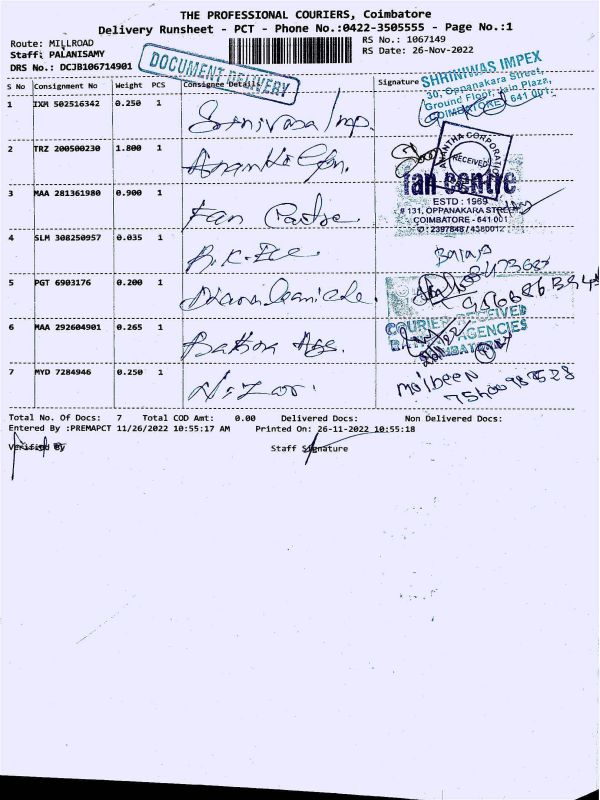 THE PROFESSIONAL COURIERS, Coimbatore
Delivery Runsheet - PCT - Phone No.:0422-3505555 - Page No.:1
Route: MILLROAD
RS No.: 1067149
Staff: PALANISAMY
RS Date: 26-Nov-2022
DRS No.: DCJB106714901
DOCUMENT DELIVERY
S No Consignment No Weight PCS Consignee Details Signature
SHRINIWAS IMPEX
30, Oppanakara Street,
Ground Floor, Plaza,
COIMBATORE - 641 001.
1 IXM 502516342 0.250 1 Srinivasa Imp.
2 TRZ 200500230 1.800 1
ANANTHA CORPORATION
RECEIVED
fan centre
ESTD : 1969
# 131, OPPANAKARA STREET
COIMBATORE - 641 001
: 2397848 / 4380012
3 MAA 281361980 0.900 1 Fan
4 SLM 308250957 0.035 1 B.K.
Balaji
5 PGT 6903176 0.200 1
COURIER RECEIVED
AGENCIES
6 MAA 292604901 0.265 1 Ags.
7 MYD 7284946 0.250 1
Total No. Of Docs: 7 Total COD Amt: 0.00 Delivered Docs: Non Delivered Docs:
Entered By :PREMAPCT 11/26/2022 10:55:17 AM Printed On: 26-11-2022 10:55:18
Verified By Staff Signature